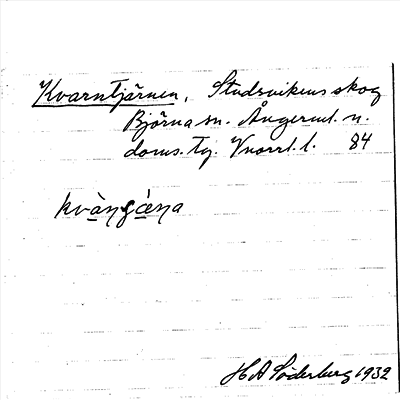 Kvarntjärnen, Studsvikens skog
Björna sn. Ångerml. n.
doms. tg. Vnorrl. l. 84
kvàŋgæ̀ŋa
H A Söderberg 1932